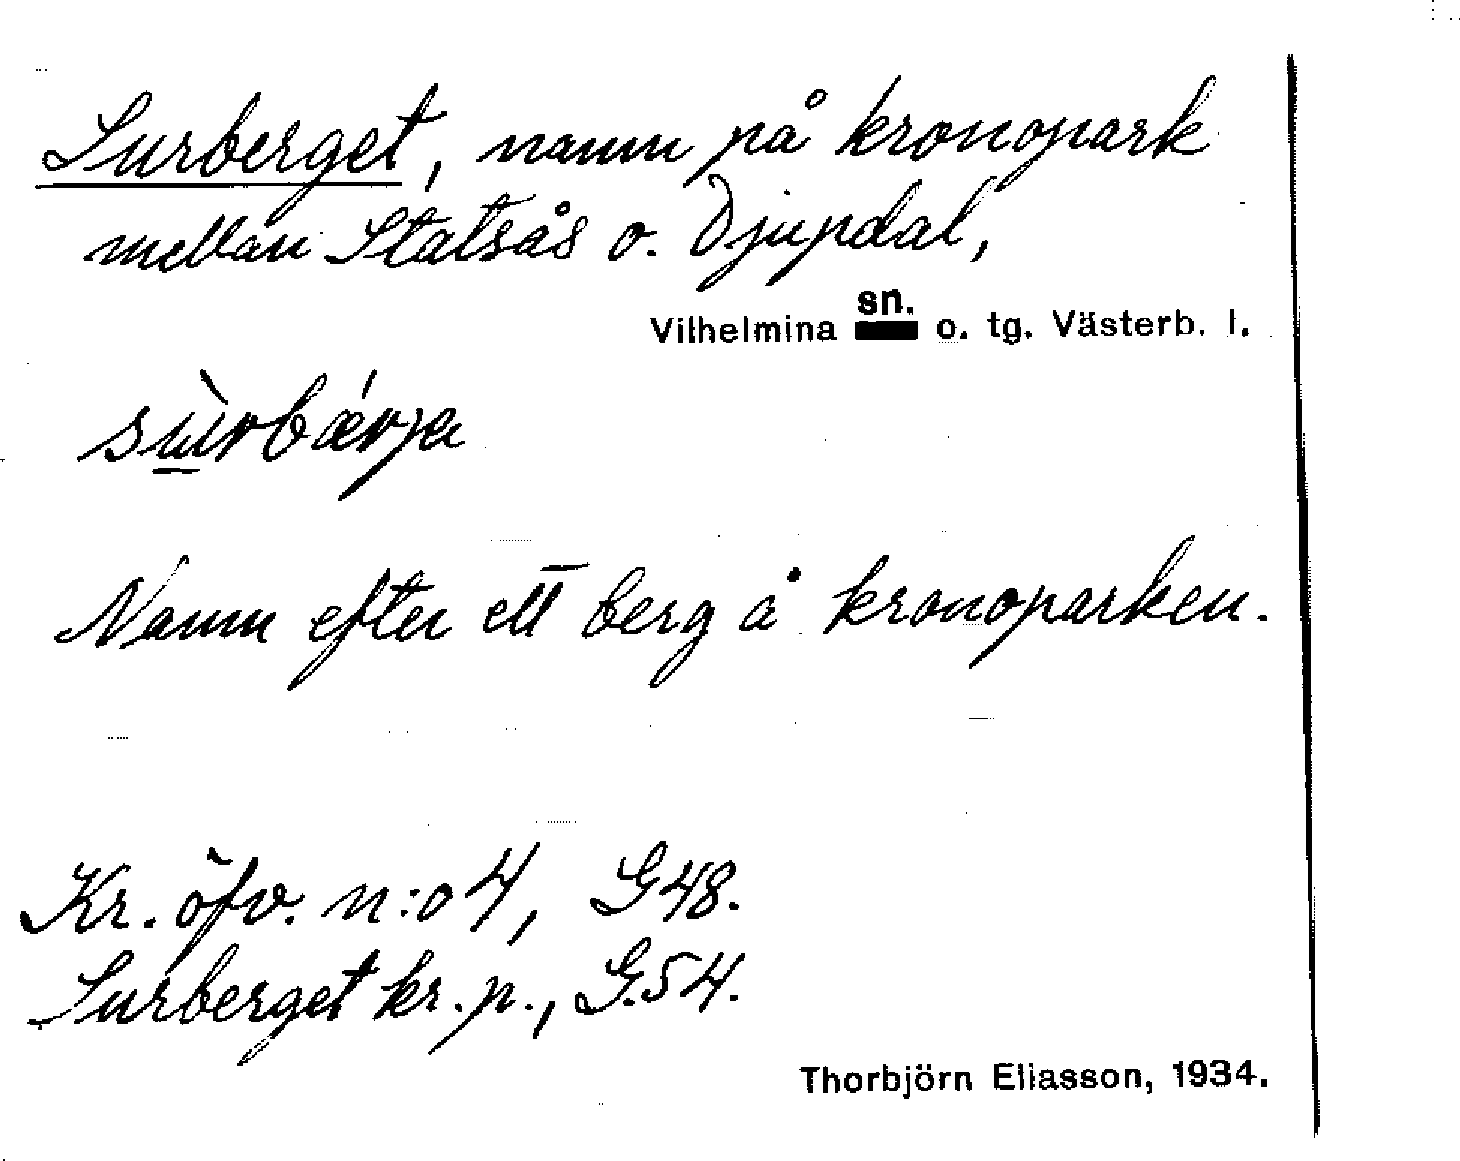 Surberget, namn på kronopark
mellan Statsås o. Djupdal,
Vilhelmina sn. o. tg. Västerb. l.
sùrbǽrja
Namn efter ett berg å kronoparken.
Kr. öfv. n:o 4, G48.
Surberget kr. p., G.54.
Thorbjörn Eliasson, 1934.